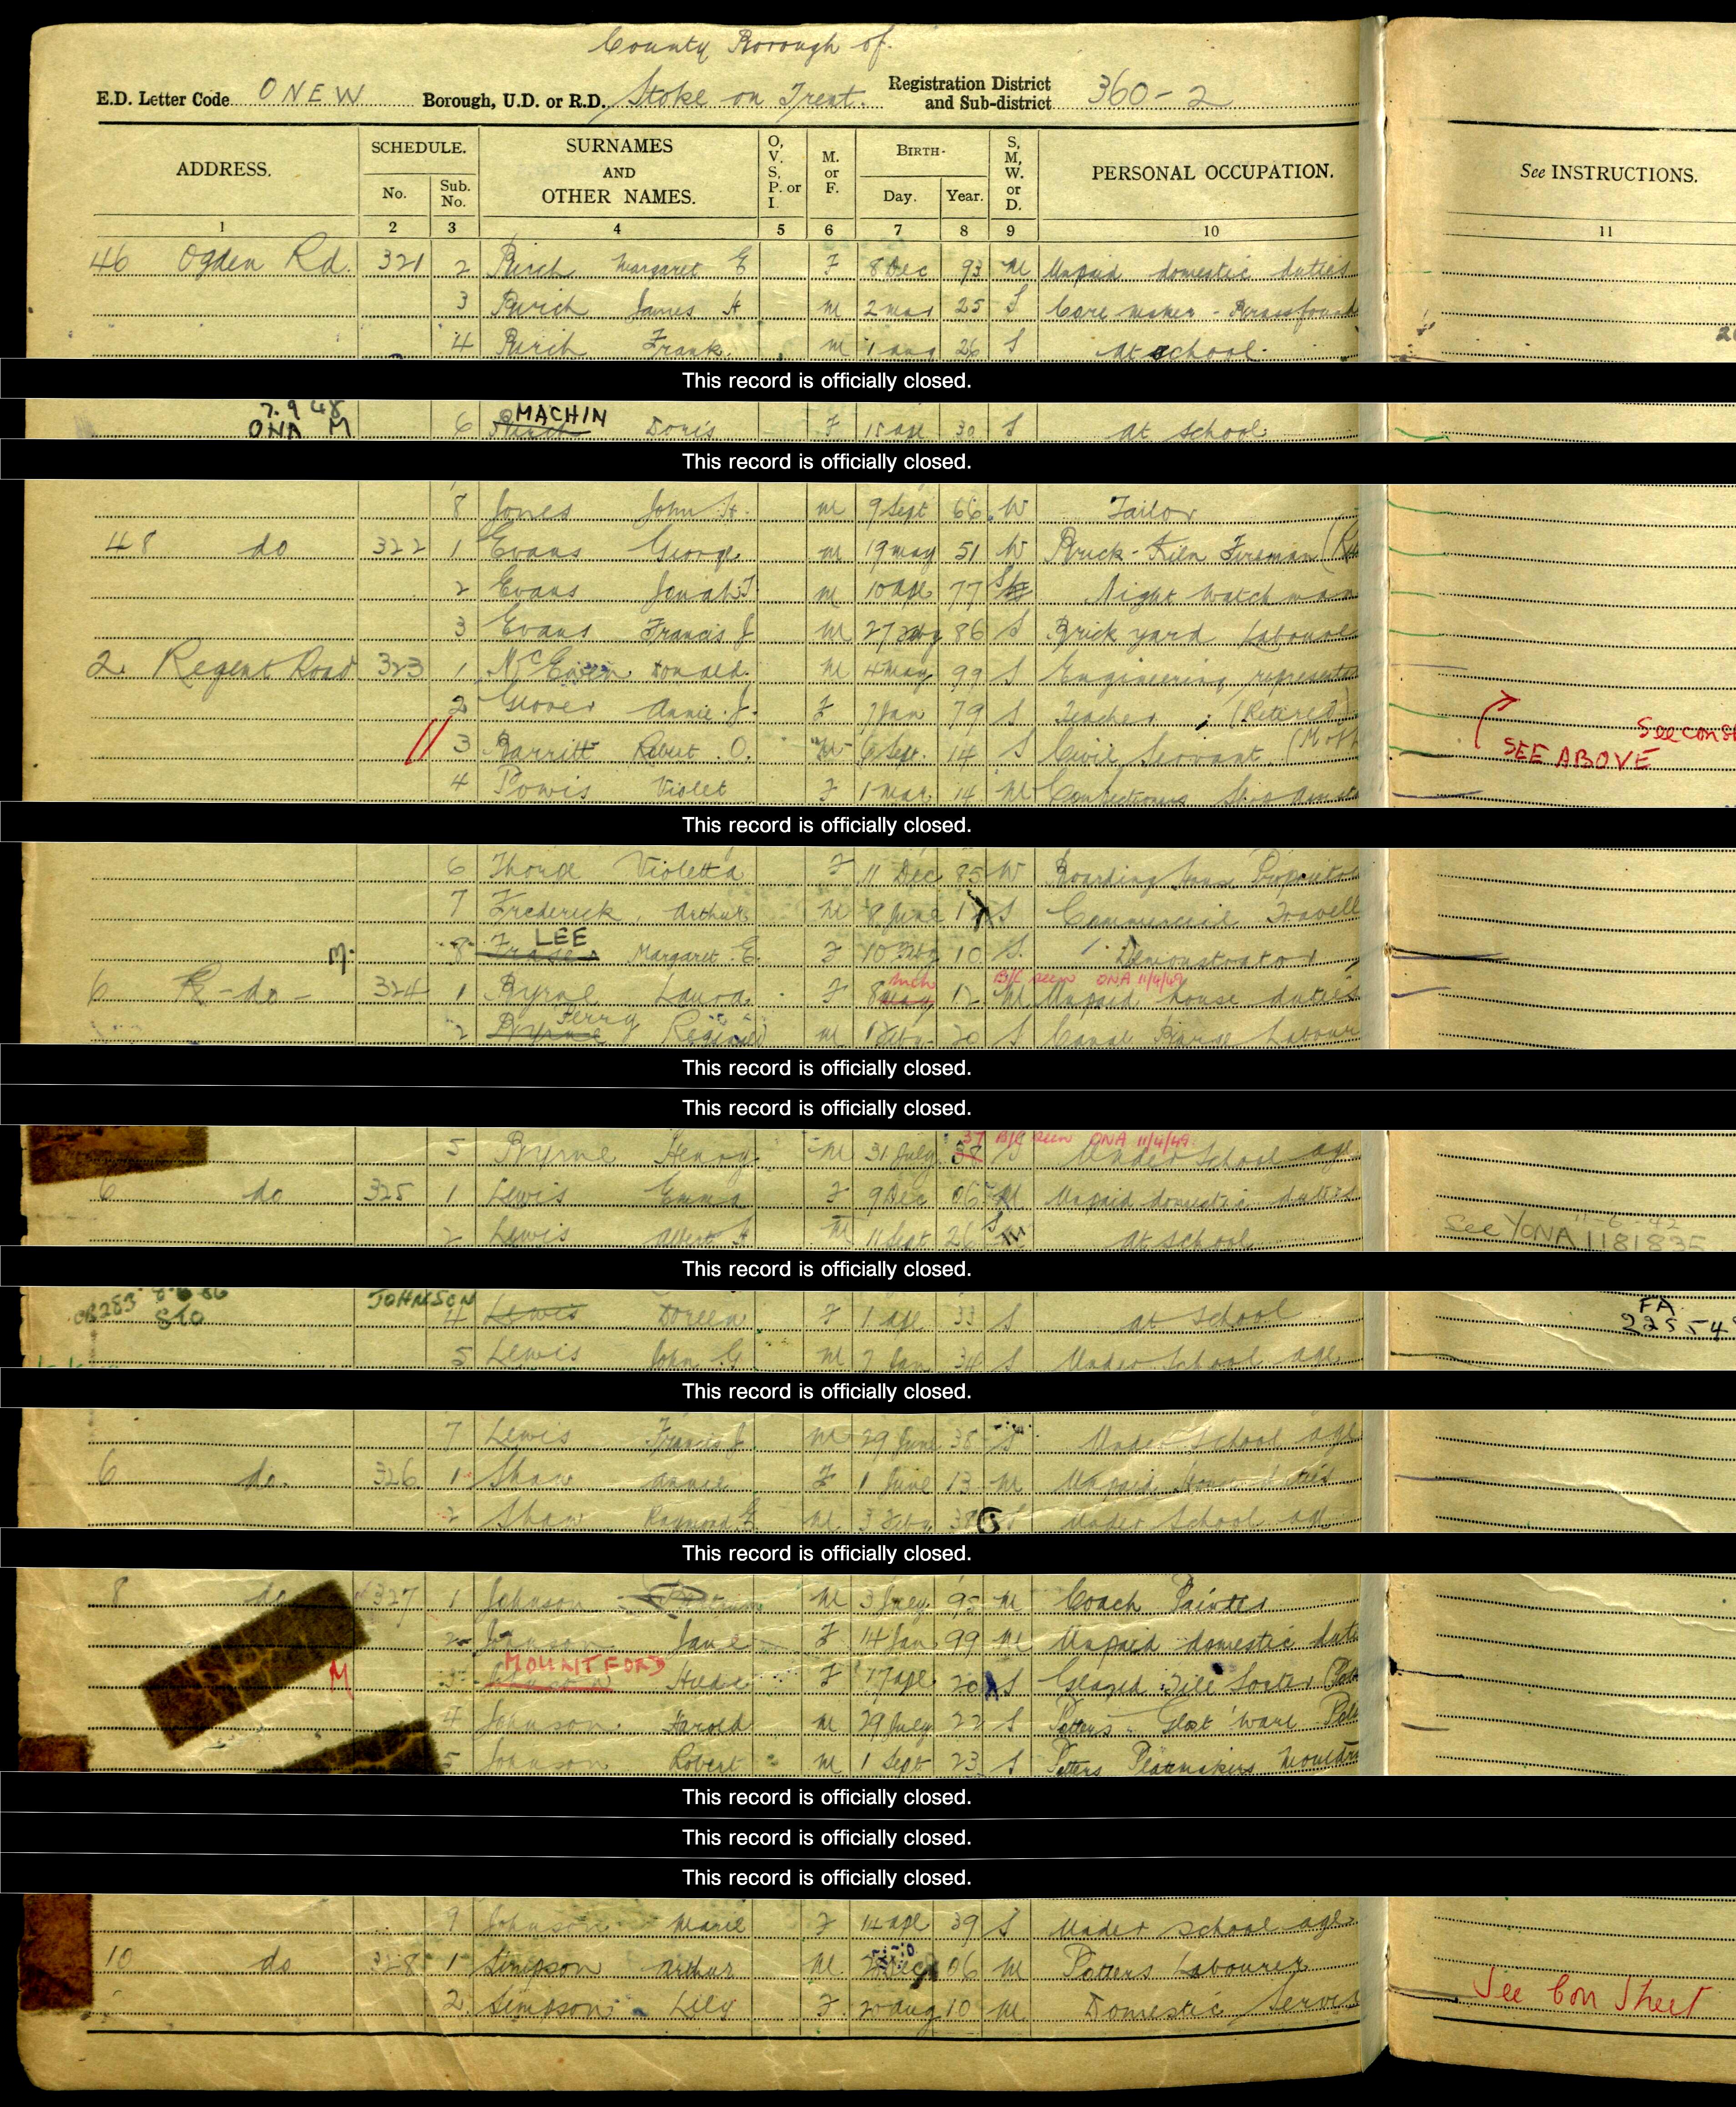 County Borough of
E.D. Letter Code ONEW Borough, U.D. or R.D. Stoke on Trent. Registration District and Sub-district 360-2
ADDRESS. SCHEDULE. No. Sub. No. SURNAMES AND OTHER NAMES. O, V. S, P. or I. M. or F. BIRTH- Day. Year. S, M, W. or D. PERSONAL OCCUPATION. See INSTRUCTIONS.
1 2 3 4 5 6 7 8 9 10 11
46 Ogden Rd. 321 2 Birch Margaret E F 8 Dec 93 M Unpaid domestic duties
3 Birch James H M 2 Mar 25 S Core maker - Brassfound
4 Birch Frank M 1 Aug 26 S At school
This record is officially closed.
7.9.48
MACHIN
ONA M 6 Birch Doris F 15 Apl 30 S At school
This record is officially closed.
8 Jones John H. M 9 Sept 66 W Tailor
48 do 322 1 Evans George M 19 May 51 W Brick-Kiln Fireman (Re
2 Evans M 10 Apl 77 S Night Watchman
3 Evans Francis J M 27 86 S Brick yard Laboure
2 Regent Road 323 1 McEwen Donald M 4 May 99 S Engineering represent
2 Glover Annie J. F 7 Jan 79 S Teacher (Retired)
3 Barritt Robert O. M 6 Sept. 14 S Civil Servant (Moth
See const
SEE ABOVE
4 Powis Violet F 1 Mar. 14 M Confectioners Shop Assist
This record is officially closed.
6 Violetta F 11 Dec 85 W Boarding House Proprietor
7 Frederick Arthur M 8 June 1 S Commercial Travell
LEE
M. 8 Fraser Margaret E. F 10 Feby 10 S. Demonstrator
mch B/C seen ONA 11/4/49
6 R-do- 324 1 Byrne Laura F 8 May 12 M Unpaid house duties
Perry
2 Byrne Reginald M 1 Feby 20 S Canal Barge Labour
This record is officially closed.
This record is officially closed.
37 B/C seen ONA 11/4/49
5 Byrne Henry M 31 July 38 S Under School age
6 do 325 1 Lewis Emma F 9 Dec 06 M Unpaid domestic duties
11-6-42
See YONA 1181835
2 Lewis Albert H M 11 Sept 26 S At school
This record is officially closed.
OR283 8-6-86
810
JOHNSON
4 Lewis Doreen F 1 Apl 33 S At School
FA
22554
5 Lewis John G M 7 Jan 36 S Under School age
This record is officially closed.
7 Lewis Francis J M 29 June 38 S Under School age
6 do. 326 1 Shaw Annie F 1 June 13 M Unpaid House duties
2 Shaw Raymond E M 3 Feby 38 S Under School age
This record is officially closed.
8 do 327 1 Johnson M 3 July 95 M Coach Painter
2 Johnson Jane F 14 Jan 99 M Unpaid domestic duti
MOUNTFORD
M 3 Johnson Hilda F 17 Apl 20 S Glazed Tile Sorter
4 Johnson Harold M 29 July 22 S Potters Glost Ware
5 Johnson Robert M 1 Sept 23 S Potters Platemakers
This record is officially closed.
This record is officially closed.
This record is officially closed.
9 Johnson Marie F 14 Apl 39 S Under school age
10 do 328 1 Simpson Arthur M 06 M Potters Labourer
See Con Sheet
2 Simpson Lily F. 20 Aug 10 M Domestic Servic